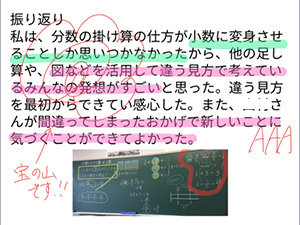 振り返り
私は、分数の掛け算の仕方が小数に変身させ
ることしか思いつかなかったから、他の足し
算や、図などを活用して違う見方で考えてい
るみんなの発想がすごいと思った。違う見方
を最初からできてい感心した。また、
んが間違ってしまったおかげで新しいことに
気づくことができてよかった。
AAA
宝の山
です!!